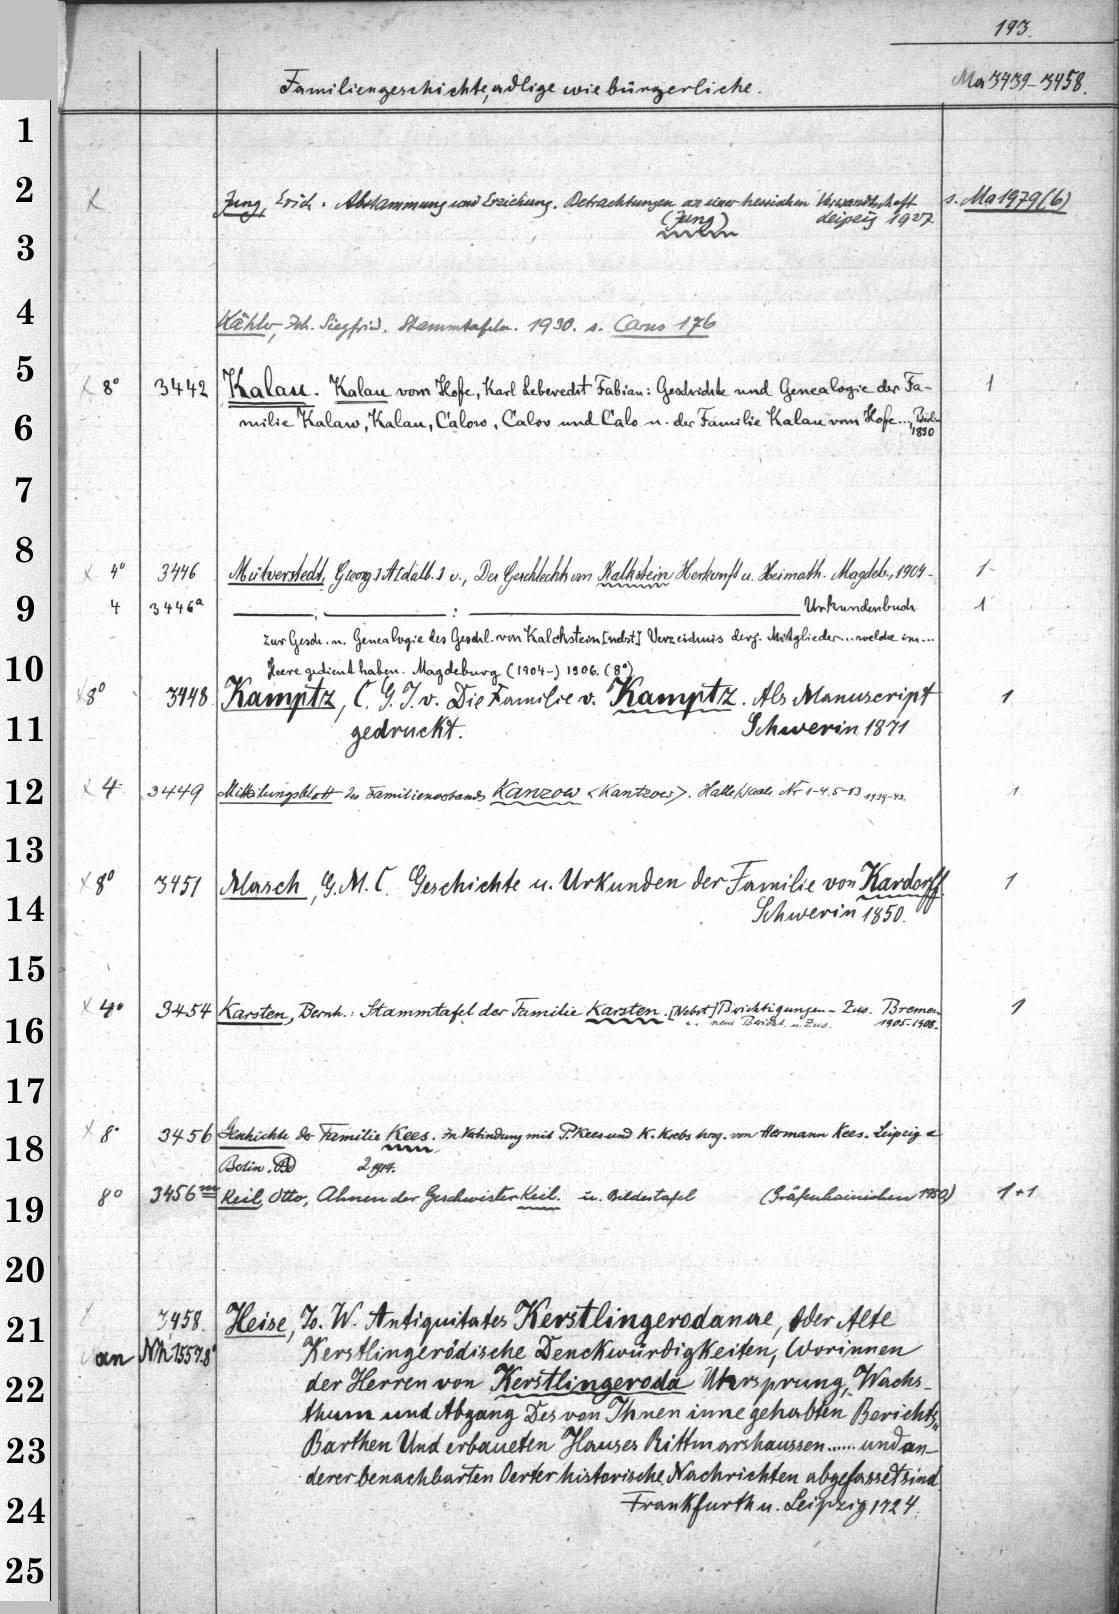 193.
Familiengeschichte, adlige wie bürgerliche. Ma 3439-3458.
1
2
3
4
5
6
7
8
9
10
11
12
13
14
15
16
17
18
19
20
21
22
23
24
25
x Jung, Erich. Abstammung und Erziehung. Betrachtungen an einer hessischen Verwandtschaft s. Ma 1979 (6)
(Jung) Leipzig 1927
Kähler, Joh. Siegfried. Stammtafeln. 1930. s. Carus 176
x 8° 3442 Kalau. Kalau vom Hofe, Karl Leberecht Fabian: Geschichte und Genealogie der Fa- 1
milie Kalaw, Kalau, Calow, Calov und Calo u. der Familie Kalau vom Hofe..., Berlin
1890
x 4° 3446 Mülverstedt, G[eorg] A[dalb.] v., Das Geschlecht von Kalkstein Herkunft u. Heimath. Magdeb., 1904- 1-
4 3446a : Urkundenbuch 1
zur Gesch. u. Genealogie des Geschl. von Kalckstein [nebst] Verzeichnis derj. Mitglieder... welche im...
Heere gedient haben. Magdeburg (1904-) 1906. (8°)
x 8° 3448 Kamptz, C. G. J. v. Die Familie v. Kamptz. Als Manuscript 1
gedruckt. Schwerin 1871
x 4 3449 Mitteilungsblatt des Familienverbands Kanzow <Kantzow>. Halle/Saale Nr 1-4. 5-13 1939-43. 1
x 8° 3451 Masch, G. M. C. Geschichte u. Urkunden der Familie von Kardorff. 1
Schwerin 1850.
x 4° 3454 Karsten, Bernh.: Stammtafel der Familie Karsten. [Nebst] Berichtigungen - Zus. Bremen 1
u. neue Bericht. u. Zus. 1905-1908.
x 8° 3456 Geschichte der Familie Kees. In Verbindung mit P. Kees und K. Krebs hrsg. von Hermann Kees. Leipzig &
Berlin. Bd 2 1914.
8° 3456m Keil, Otto, Ahnen der Geschwister Keil. u. Bildertafel (Gräfenhainichen 1950) 1+1
3458. Heise, Jo. W. Antiquitates Kerstlingerodanae, oder Alte
an Nh 15578° Kerstlingerödische Denckwürdigkeiten, Worinnen
der Herren von Kerstlingeroda Uhrsprung, Wachs-
thum und Abgang Des von Ihnen inne gehabten Berichts,,
Barthen Und erbaueten Hauses Rittmarshaussen...... und an-
derer benachbarten Oerter historische Nachrichten abgefasset sind
Frankfurth u. Leipzig 1724.